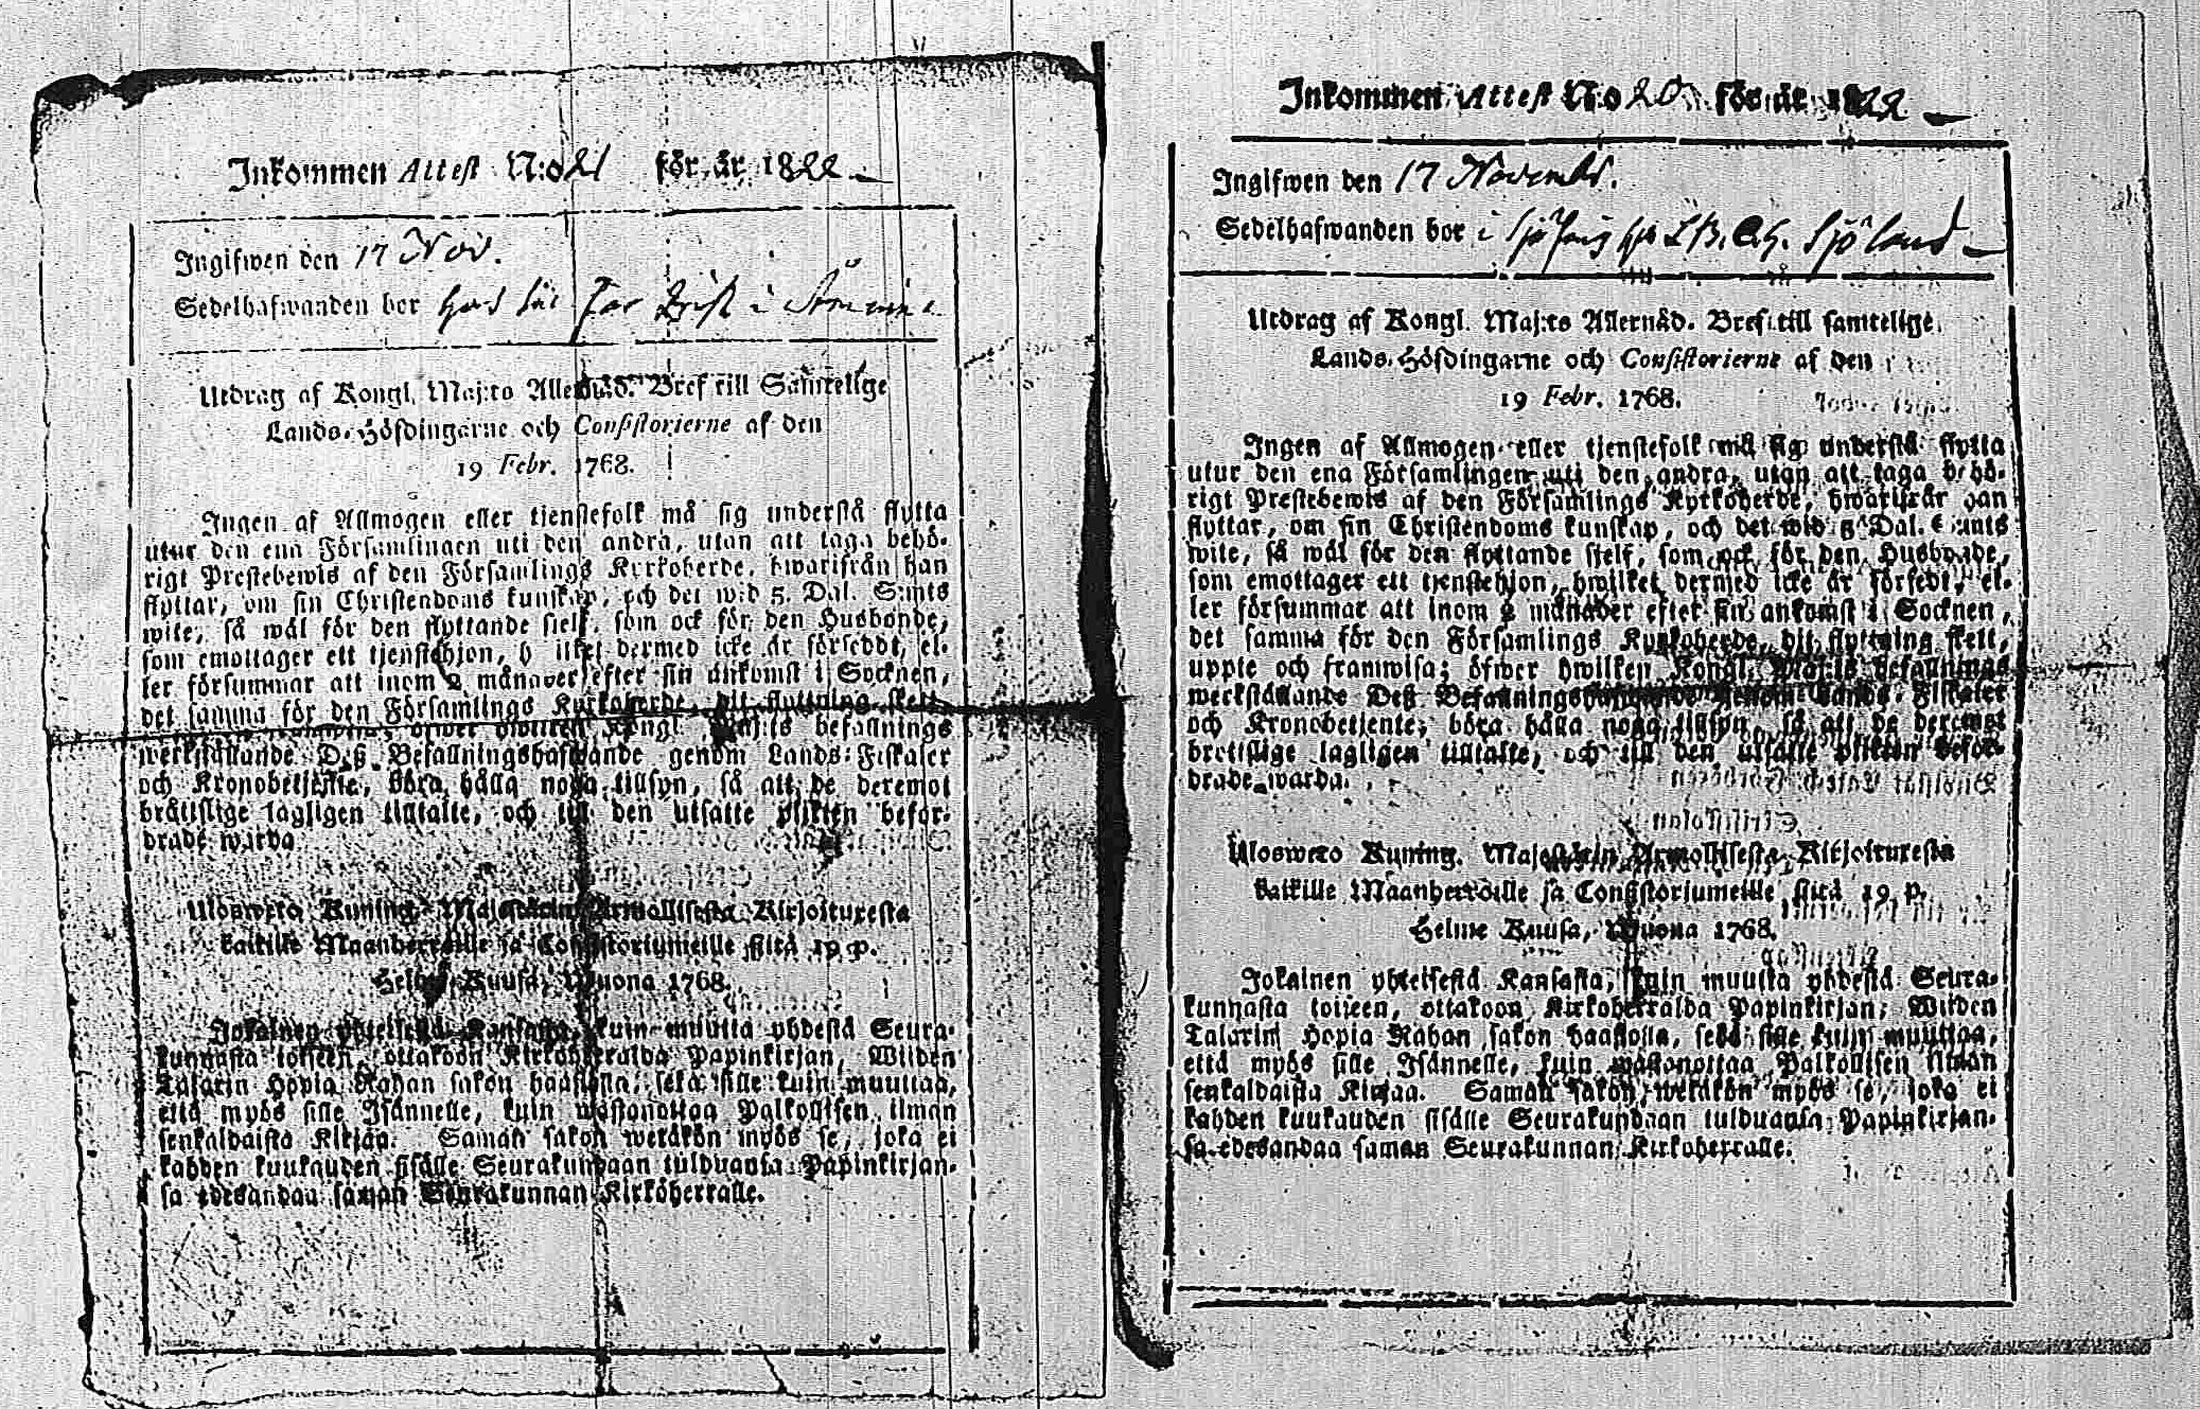 Inkommen Attest N:o 21 för år 1822
Ingifwen den 17 Nov.
Sedelhafwanden bor
Utdrag af Kongl. Maj:ts Allernåd. Bref till Samtelige
Lands-Höfdingarne och Consistorierne af den
19 Febr. 1768.
Ingen af Allmogen eller tjenstefolk må sig understå flytta
utur den ena Församlingen uti den andra, utan att taga behö-
rigt Prestebewis af den Församlings Kyrkoherde, hwarifrån han
flyttar, om sin Christendoms kunskap, och det wid 5. Dal. S:mts
wite, så wäl för den flyttande sjelf, som ock för den Husbonde,
som emottager ett tjenstehjon, hwilket dermed icke är förseddt, el-
ler försummar att inom 2 månader efter sin ankomst i Socknen,
det samma för den Församlings Kyrkoherde, dit flyttning skett,
öfwer hwilken Kongl. Maj:ts befallnings
werkställande Deß Befallningshafwande genom Lands-Fiskaler
och Kronobetjente, böra hålla noga tillsyn, så att de deremot
brottslige lagligen tilltalte, och till den utsatte plikten befor-
drade warda.
Ulosweto Kuning. Majestätin Armollisesta Kirjoituxesta
kaikille Maanherroille ja Consistoriumeille siitä 19 p.
Helme Kuusa, Wuona 1768.
Jokainen yhteisestä Kansasta, kuin muutta yhdestä Seura-
kunnasta toiseen, ottakoon Kirkoherralda Papinkirjan, Wiiden
Talarin Hopia Rahan sakon haastolla, sekä sille kuin muuttaa,
että myös sille Isännelle, kuin wastanottaa Palkollisen ilman
senkaldaista Kirjaa. Saman sakon wetäkön myös se, joka ei
kahden kuukauden sisälle Seurakundaan tulduansa Papinkirjan-
sa edesandaa saman Seurakunnan Kirkoherralle.
Inkommen Attest N:o 20 för år 1822
Ingifwen den 17 Novembr.
Sedelhafwanden bor i
Utdrag af Kongl. Maj:ts Allernåd. Bref till samtelige
Lands-Höfdingarne och Consistorierne af den
19 Febr. 1768.
Ingen af Allmogen eller tjenstefolk må sig understå flytta
utur den ena Församlingen uti den andra, utan att taga behö-
rigt Prestebewis af den Församlings Kyrkoherde, hwarifrån han
flyttar, om sin Christendoms kunskap, och det wid 5 Dal. S:mts
wite, så wäl för den flyttande sjelf, som ock för den Husbonde,
som emottager ett tjenstehjon, hwilket dermed icke är försedt, el-
ler försummar att inom 2 månader efter sin ankomst i Socknen,
det samma för den Församlings Kyrkoherde, dit flyttning skett,
uppte och framwisa; öfwer hwilken Kongl. Maj:ts befallnings
werkställande Deß Befallningshafwande genom Lands-Fiskaler
och Kronobetjente, böra hålla noga tillsyn, så att de deremot
brottslige lagligen tilltalte, och till den utsatte plikten befor-
drade warda.
Ulosweto Kuning. Majestätin Armollisesta Kirjoituxesta
kaikille Maanherroille ja Consistoriumeille siitä 19 p.
Helme Kuusa, Wuona 1768.
Jokainen yhteisestä Kansasta, kuin muutta yhdestä Seura-
kunnasta toiseen, ottakoon Kirkoherralda Papinkirjan, Wiiden
Talarin Hopia Rahan sakon haastolla, sekä sille kuin muuttaa,
että myös sille Isännelle, kuin wastanottaa Palkollisen ilman
senkaldaista Kirjaa. Saman sakon wetäkön myös se, joka ei
kahden kuukauden sisälle Seurakundaan tulduansa Papinkirjan-
sa edesandaa saman Seurakunnan Kirkoherralle.